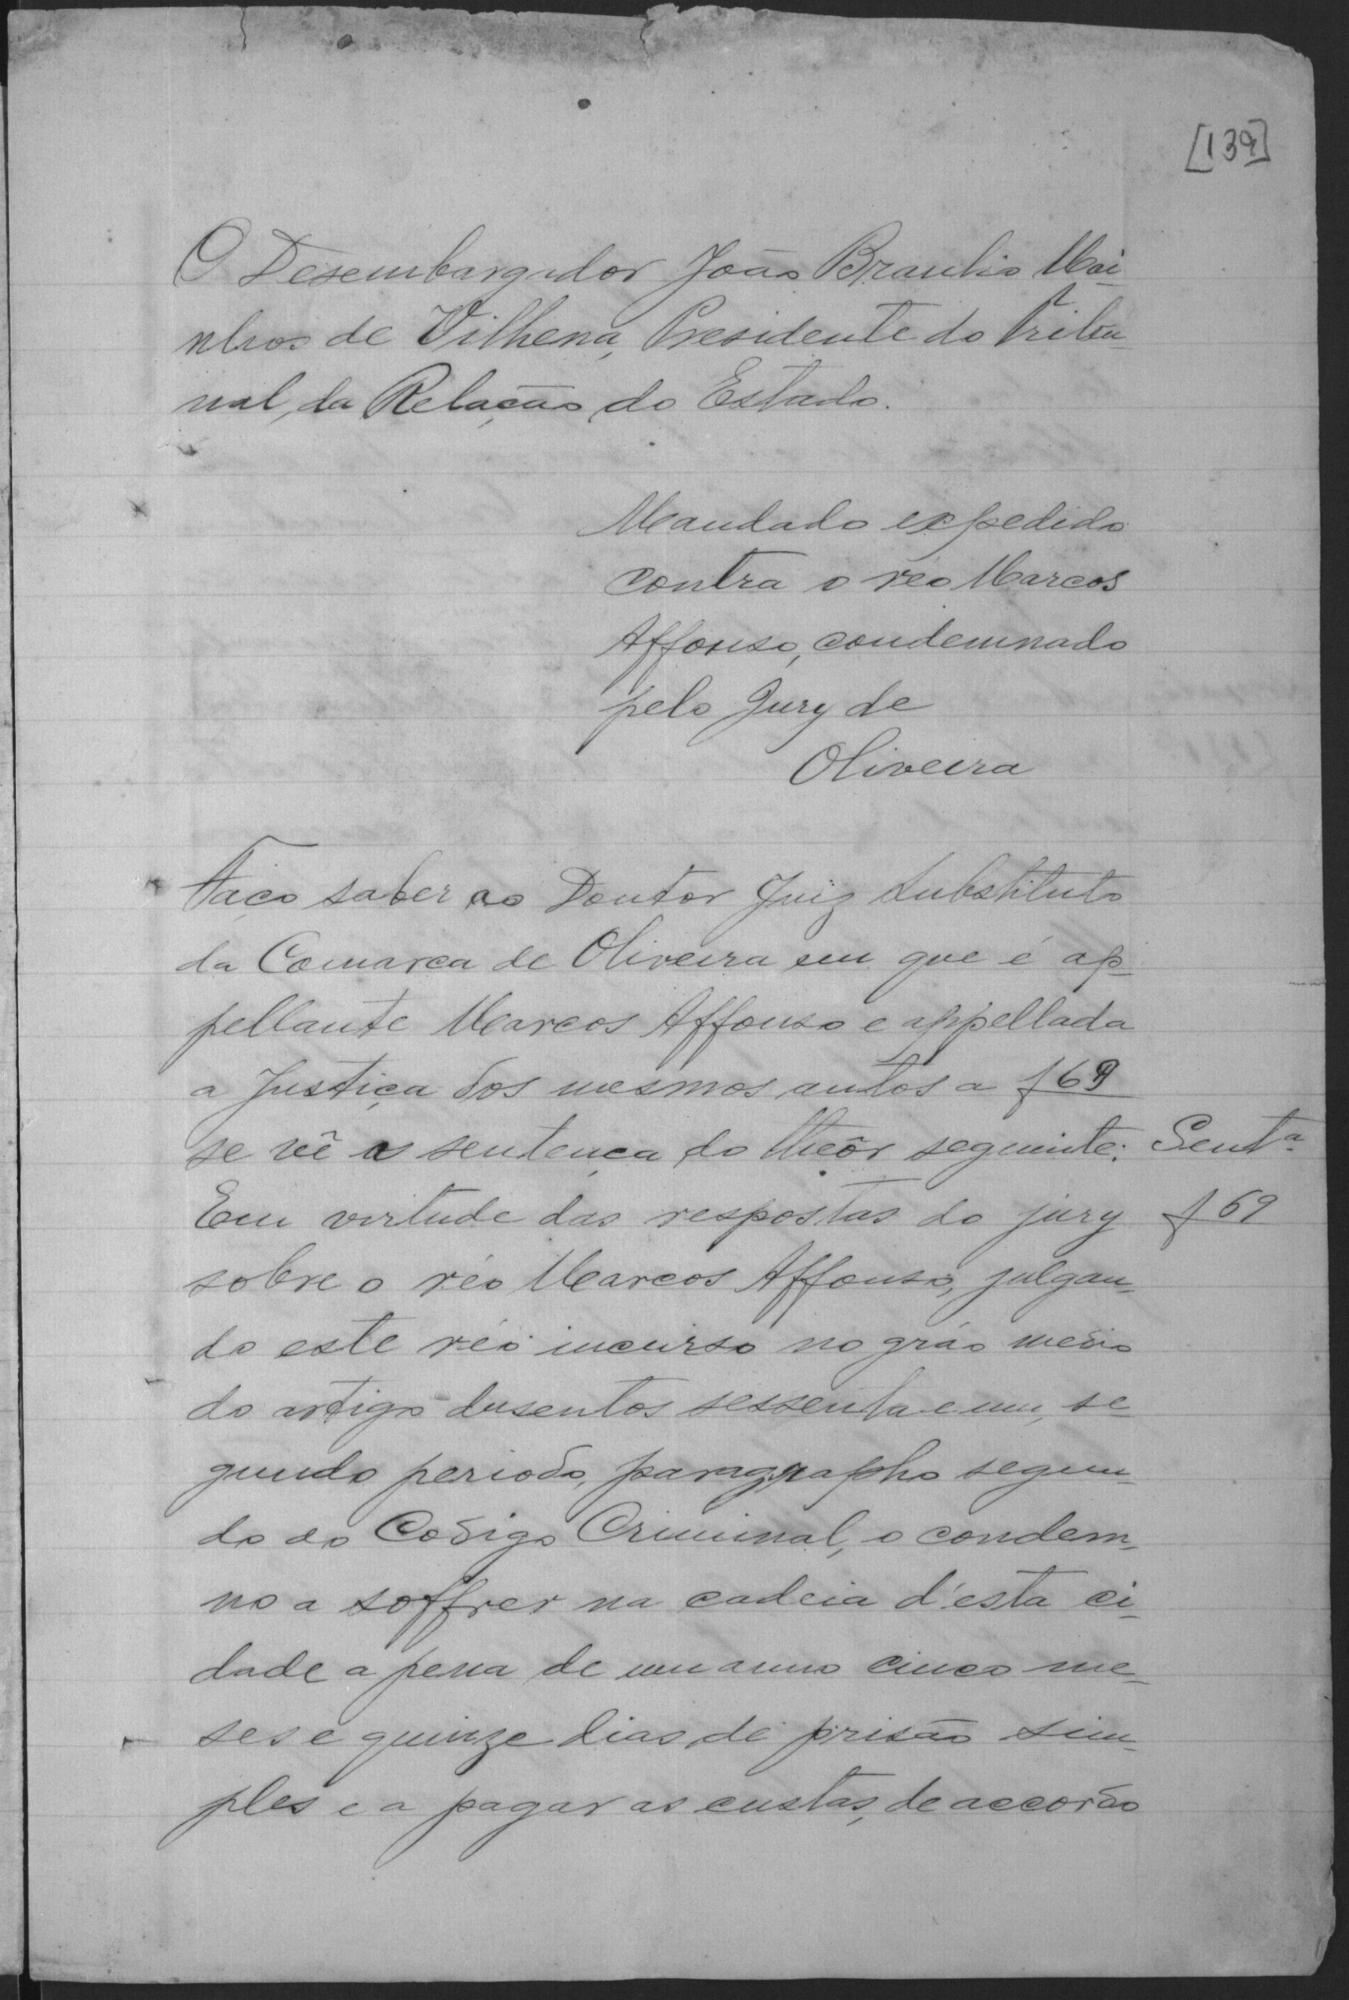 [139]
O Desembargador João Braulio Moi-
nhos de Vilhena, Presidente do Tribu-
nal, da Relação, do Estado.
Mandado expedido
contra o réo Marcos
Affonso, condemnado
pelo Jury de
Oliveira
Faço saber ao Doutor Juiz Substituto
da Comarca de Oliveira em que é ap-
pellante Marcos Affonso e appellada
a Justiça dos mesmos autos a f 69
se vê a sentença do theôr seguinte: Sentª
Em virtude das respostas do jury f 69
sobre o réo Marcos Affonso, julgan-
do este réo incurso no gráo medio
do artigo dusentos sessenta e um, se-
gundo periodo, paragrapho segun-
do do Codigo Criminal, o condem-
no a soffrer na cadeia d'esta ci-
dade a pena de um anno cinco me-
ses e quinze dias de prisão sim-
ples e a pagar as custas, de accordo